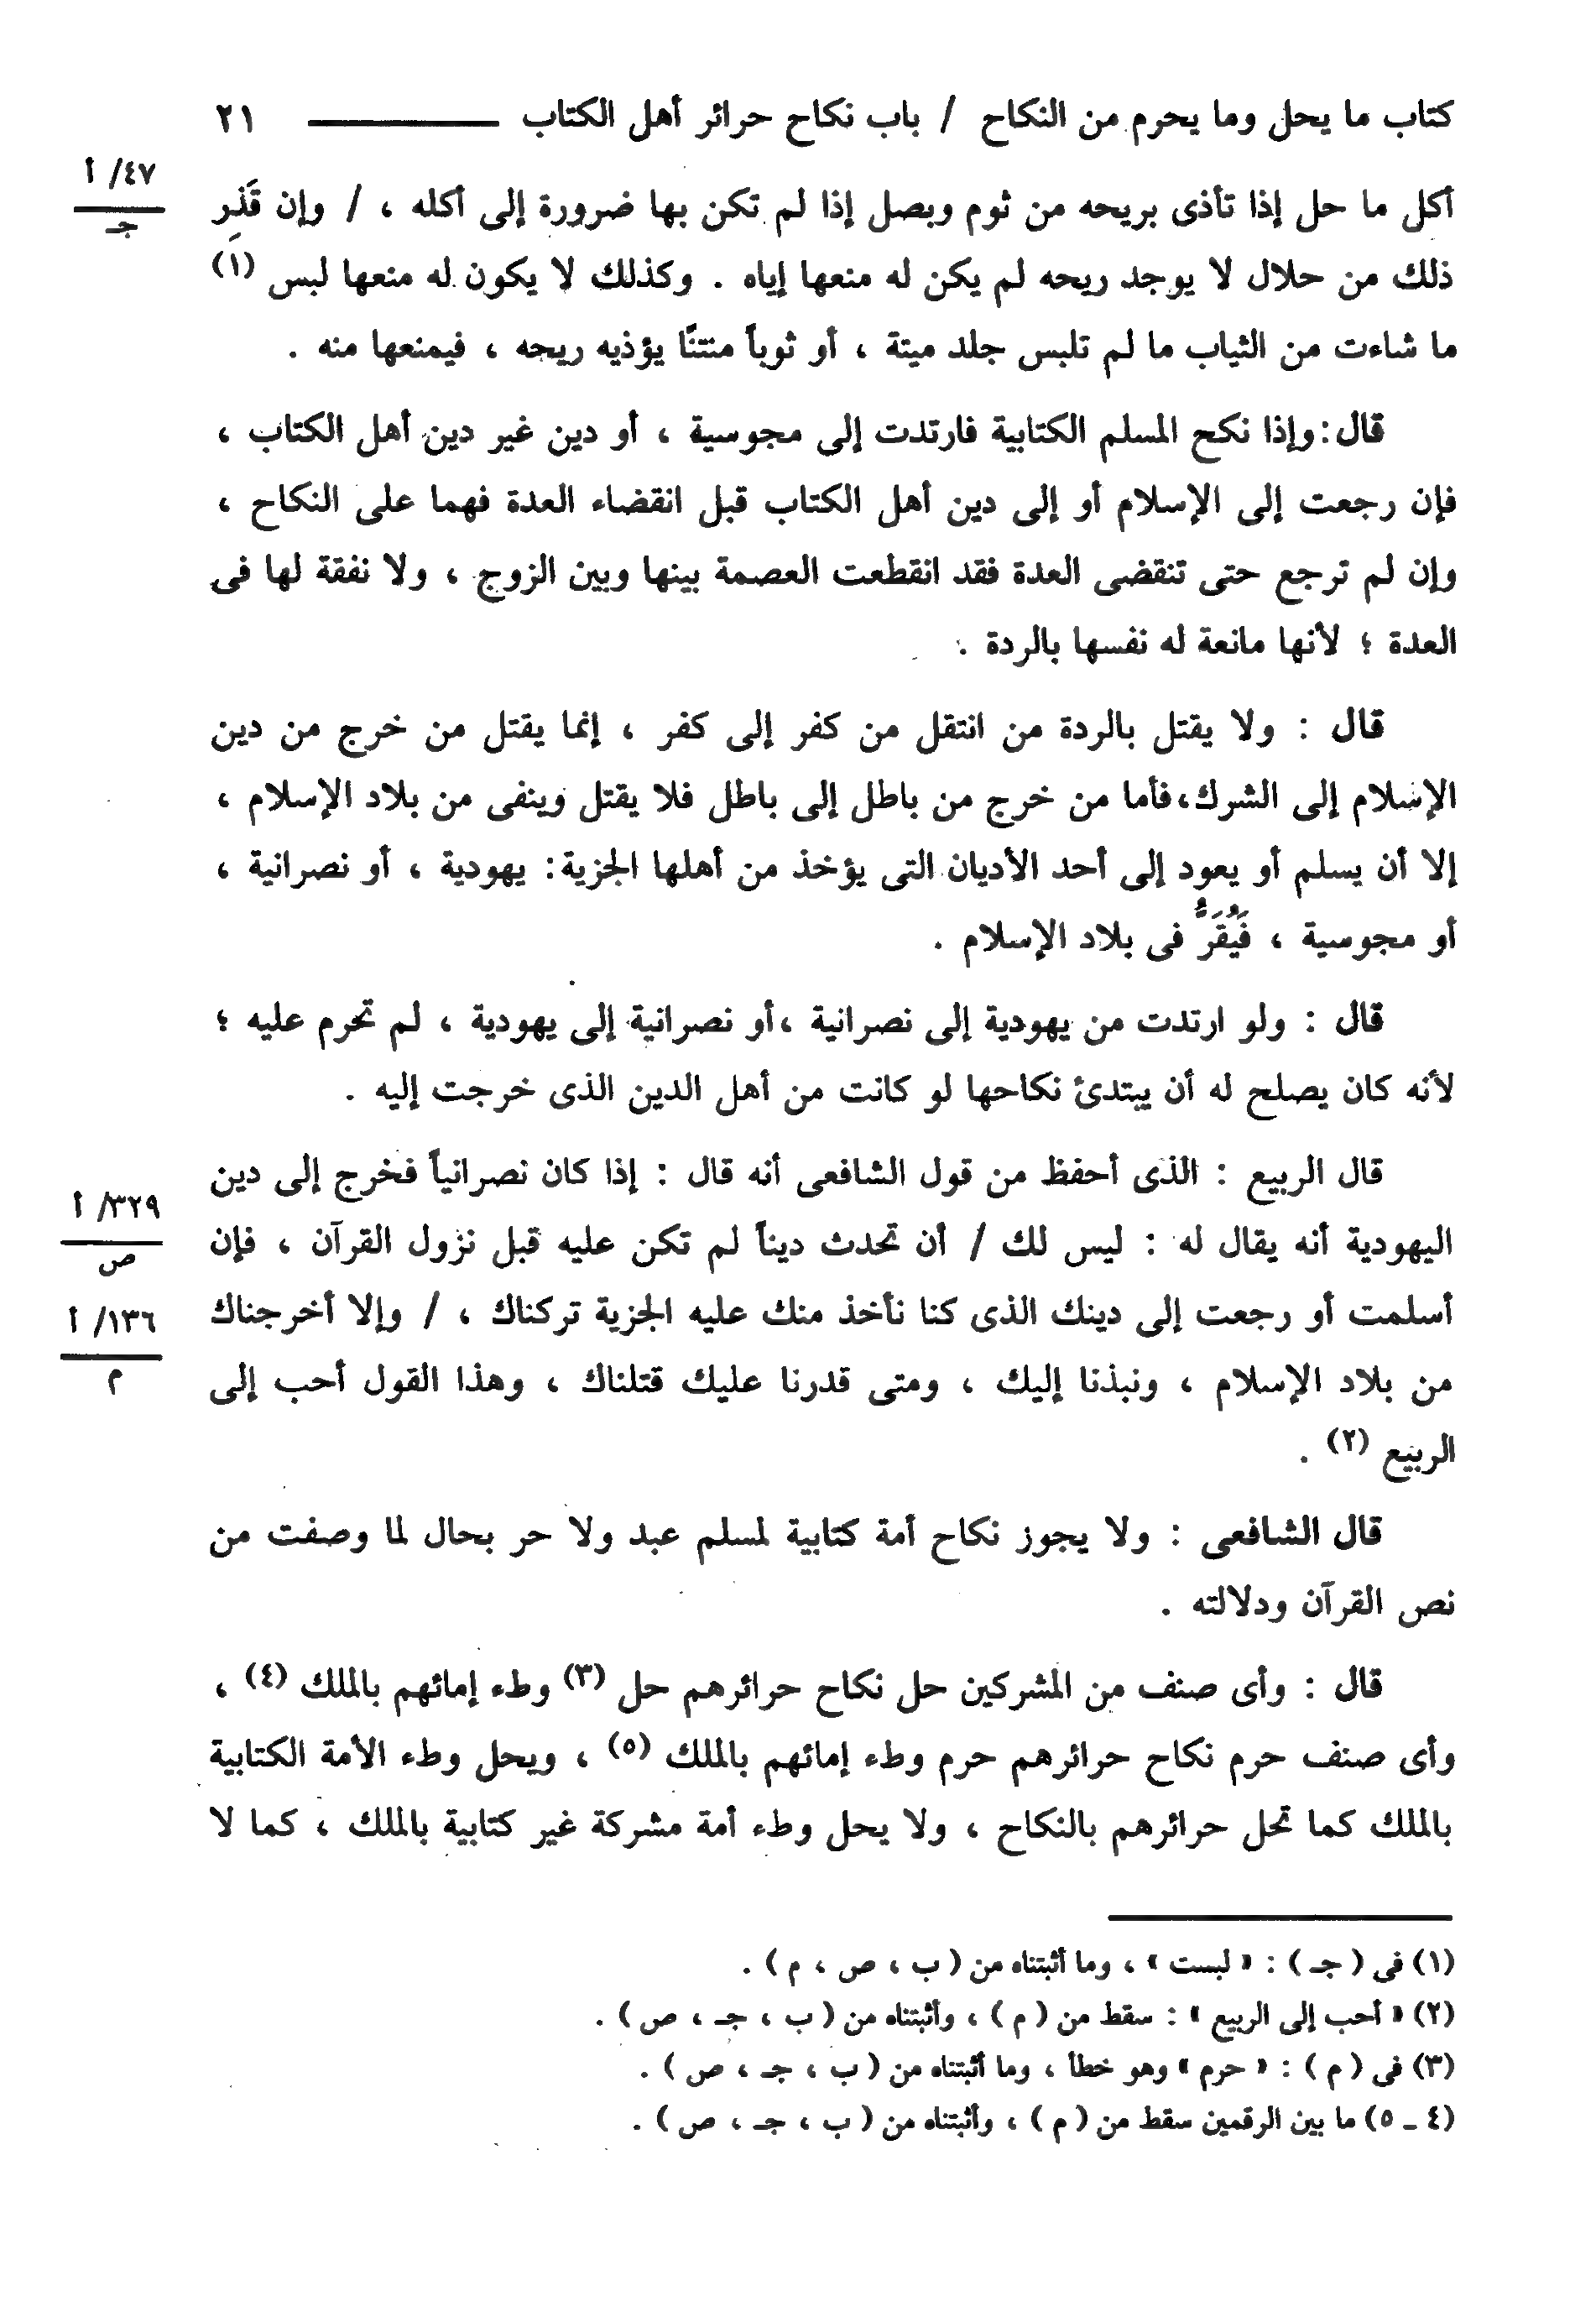 كتاب ما يحل وما يحرم من النكاح / باب نكاح حرائر أهل الكتاب ٢١
٤٧/ أ
جـ
أكل ما حل إذا تأذى بريحه من ثوم وبصل إذا لم تكن بها ضرورة إلى أكله ، / وإن قَذِر
ذلك من حلال لا يوجد ريحه لم يكن له منعها إياه . وكذلك لا يكون له منعها لبس (١)
ما شاءت من الثياب ما لم تلبس جلد ميتة ، أو ثوباً منتنًا يؤذيه ريحه ، فيمنعها منه .
قال :وإذا نكح المسلم الكتابية فارتدت إلى مجوسية ، أو دين غير دين أهل الكتاب ،
فإن رجعت إلى الإسلام أو إلى دين أهل الكتاب قبل انقضاء العدة فهما على النكاح ،
وإن لم ترجع حتى تنقضى العدة فقد انقطعت العصمة بينها وبين الزوج ، ولا نفقة لها فى
العدة ؛ لأنها مانعة له نفسها بالردة .
قال : ولا يقتل بالردة من انتقل من كفر إلى كفر ، إنما يقتل من خرج من دين
الإسلام إلى الشرك،فأما من خرج من باطل إلى باطل فلا يقتل وينفى من بلاد الإسلام ،
إلا أن يسلم أو يعود إلى أحد الأديان التى يؤخذ من أهلها الجزية: يهودية ، أو نصرانية ،
أو مجوسية ، فَيُقَرُّ فى بلاد الإسلام .
قال : ولو ارتدت من يهودية إلى نصرانية ،أو نصرانية إلى يهودية ، لم تحرم عليه ؛
لأنه كان يصلح له أن يبتدئ نكاحها لو كانت من أهل الدين الذى خرجت إليه .
قال الربيع : الذى أحفظ من قول الشافعى أنه قال : إذا كان نصرانياً فخرج إلى دين
٣٢٩/ أ
ص
اليهودية أنه يقال له : ليس لك / أن تحدث ديناً لم تكن عليه قبل نزول القرآن ، فإن
١٣٦/ أ
م
أسلمت أو رجعت إلى دينك الذى كنا نأخذ منك عليه الجزية تركناك ، / وإلا أخرجناك
من بلاد الإسلام ، ونبذنا إليك ، ومتى قدرنا عليك قتلناك ، وهذا القول أحب إلى
الربيع (٢) .
قال الشافعى : ولا يجوز نكاح أمة كتابية لمسلم عبد ولا حر بحال لما وصفت من
نص القرآن ودلالته .
قال : وأى صنف من المشركين حل نكاح حرائرهم حل (٣) وطء إمائهم بالملك (٤) ،
وأى صنف حرم نكاح حرائرهم حرم وطء إمائهم بالملك (٥) ، ويحل وطء الأمة الكتابية
بالملك كما تحل حرائرهم بالنكاح ، ولا يحل وطء أمة مشركة غير كتابية بالملك ، كما لا
(١) فى ( جـ ) : « لبست » ، وما أثبتناه من ( ب ، ص ، م ) .
(٢) « أحب إلى الربيع » : سقط من ( م ) ، وأثبتناه من ( ب ، جـ ، ص ) .
(٣) فى ( م ) : « حرم » وهو خطأ ، وما أثبتناه من ( ب ، جـ ، ص ) .
(٤ ـ ٥) ما بين الرقمين سقط من ( م ) ، وأثبتناه من ( ب ، جـ ، ص ) .